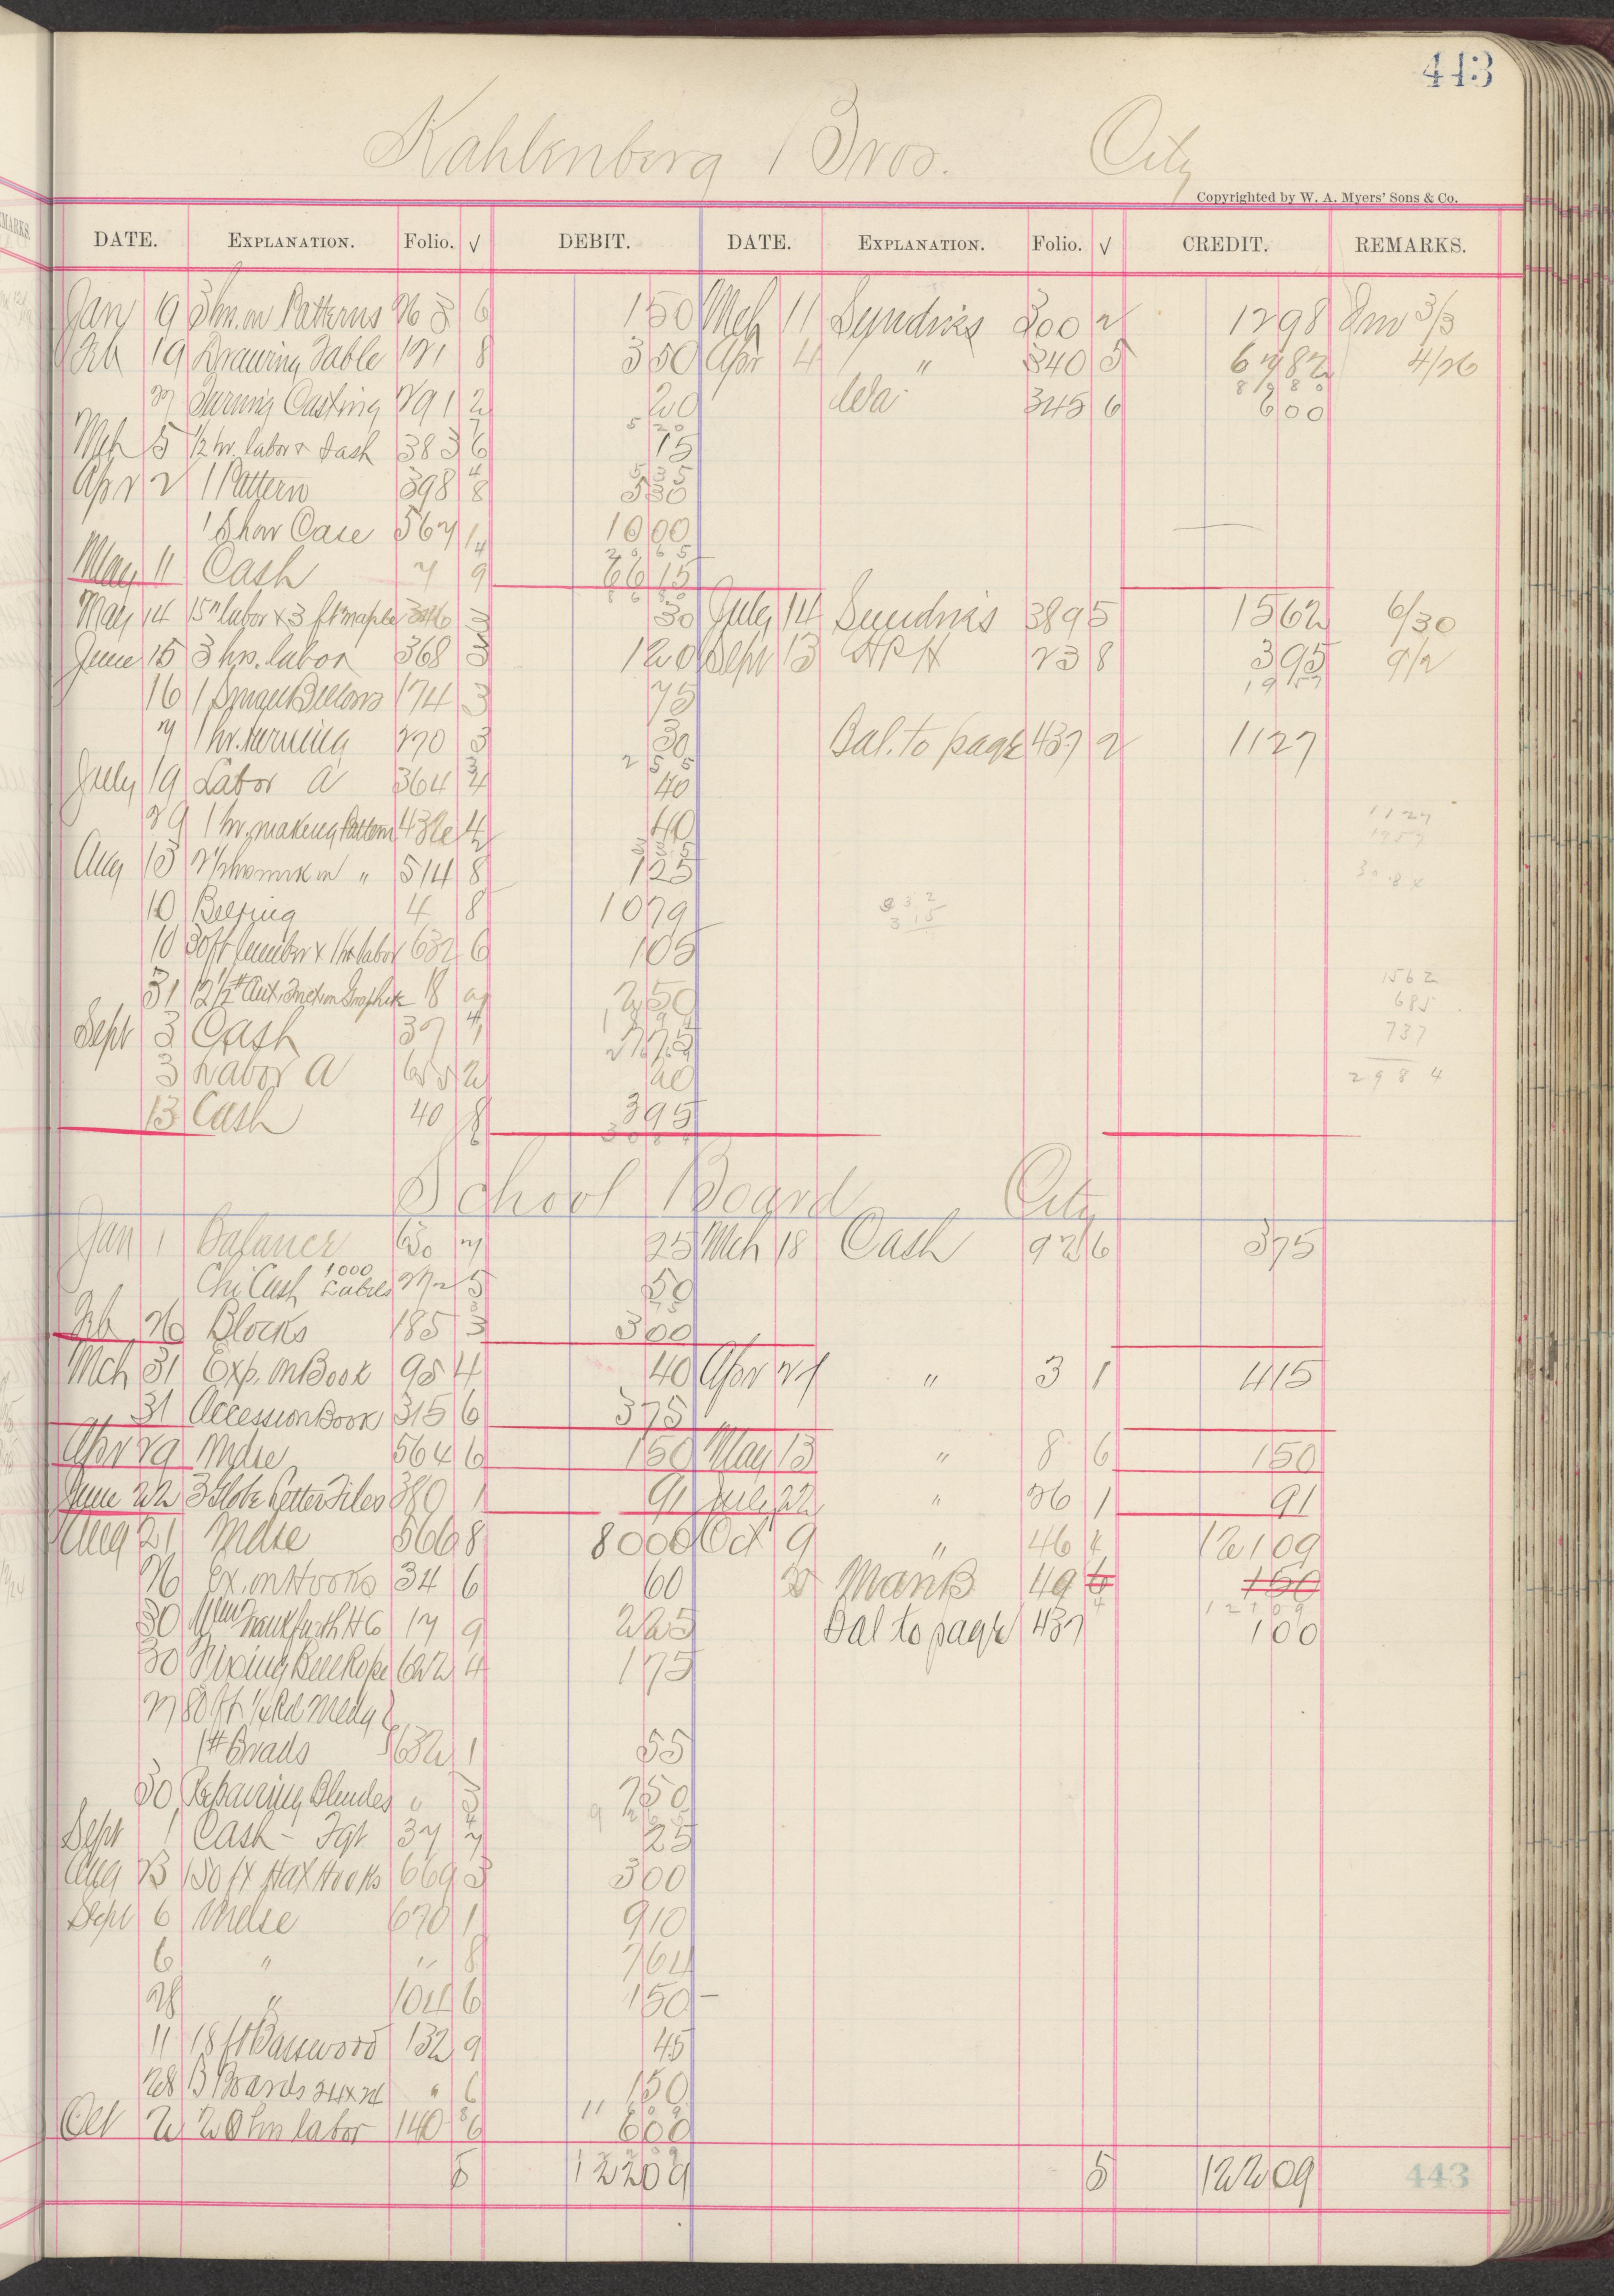 443
Kahlenberg Bros. City
Copyrighted by W. A. Myers' Sons & Co.
DATE. EXPLANATION. Folio. √ DEBIT. DATE. EXPLANATION. Folio. √ CREDIT. REMARKS.
Jan 19 3 hrs. on Patterns 263 6 150 Mch 11 Sundries 300 2 1298 3/3
Feb 19 Drawing Table 121 8 350 Apr 4 " 340 5 6782 4/26
8180
27 Turning Casting 291 2 20 345 6 600
520
Mch 5 1/2 hr. labor & sash 383 6 15
535
Apr 2 1 Pattern 398 8 530
1 Show Case 567 1 1000
2065
May 11 Cash 7 9 6615
8680
May 14 labor & 3 ft maple 346 3 30 July 14 Sundries 389 5 1562 6/30
June 15 3 hrs. labor 368 3 120 Sept 13 238 8 395 9/2
1957
16 1 Bellows 174 3 75
7 1 hr. turning 270 3 30 Bal. to page 437 2 1127
255
July 19 Labor A 364 4 40
29 1 hr. making Pattern 432 4 40 1127
335 1957
Aug 13 2 1/2 hrs work on " 514 8 125
3084
10 Belting 4 8 1079 832
315
10 30 ft lumber & 1 hr labor 632 6 105
31 12 1/2 # Graphite 18 9 250 1562
685
Sept 3 Cash 37 1 775 737
3 Labor A 655 2 20 2984
13 Cash 40 8 395
3084
School Board City
Jan 1 Balance 630 7 25 Mch 18 Cash 92 6 375
1000
Chi Cash Labels 272 5 50
Feb 26 Blocks 185 3 300
Mch 31 Exp. on Book 95 4 40 Apr 27 " 3 1 415
31 Accession Book 315 6 375
Apr 29 Mdse 564 6 150 May 13 " 8 6 150
June 22 3 Globe Letter Files 380 1 91 July 22 " 26 1 91
Aug 21 Mdse 566 8 8000 Oct 9 " 46 4 12109
26 Ex. on Hooks 34 6 60 49 6 150
12109
30 Wm Frankfurth H Co 17 9 225 Bal to page 437 100
30 Fixing Bell Rope 622 4 175
27 80 ft 1/4 Rd Mldg
1# Brads 632 1 55
30 Repairing Blinds " 3 750
Sept 1 Cash - Fgt 37 7 25
Aug 23 150 ft Hat Hooks 669 3 300
Sept 6 Mdse 670 1 910
6 " " 8 764
28 " 104 6 150 -
11 18 ft Basswood 132 9 45
28 3 Boards 24x24 " 6 150
Oct 2 20 hrs labor 140 6 600
5 12209 5 12209
443